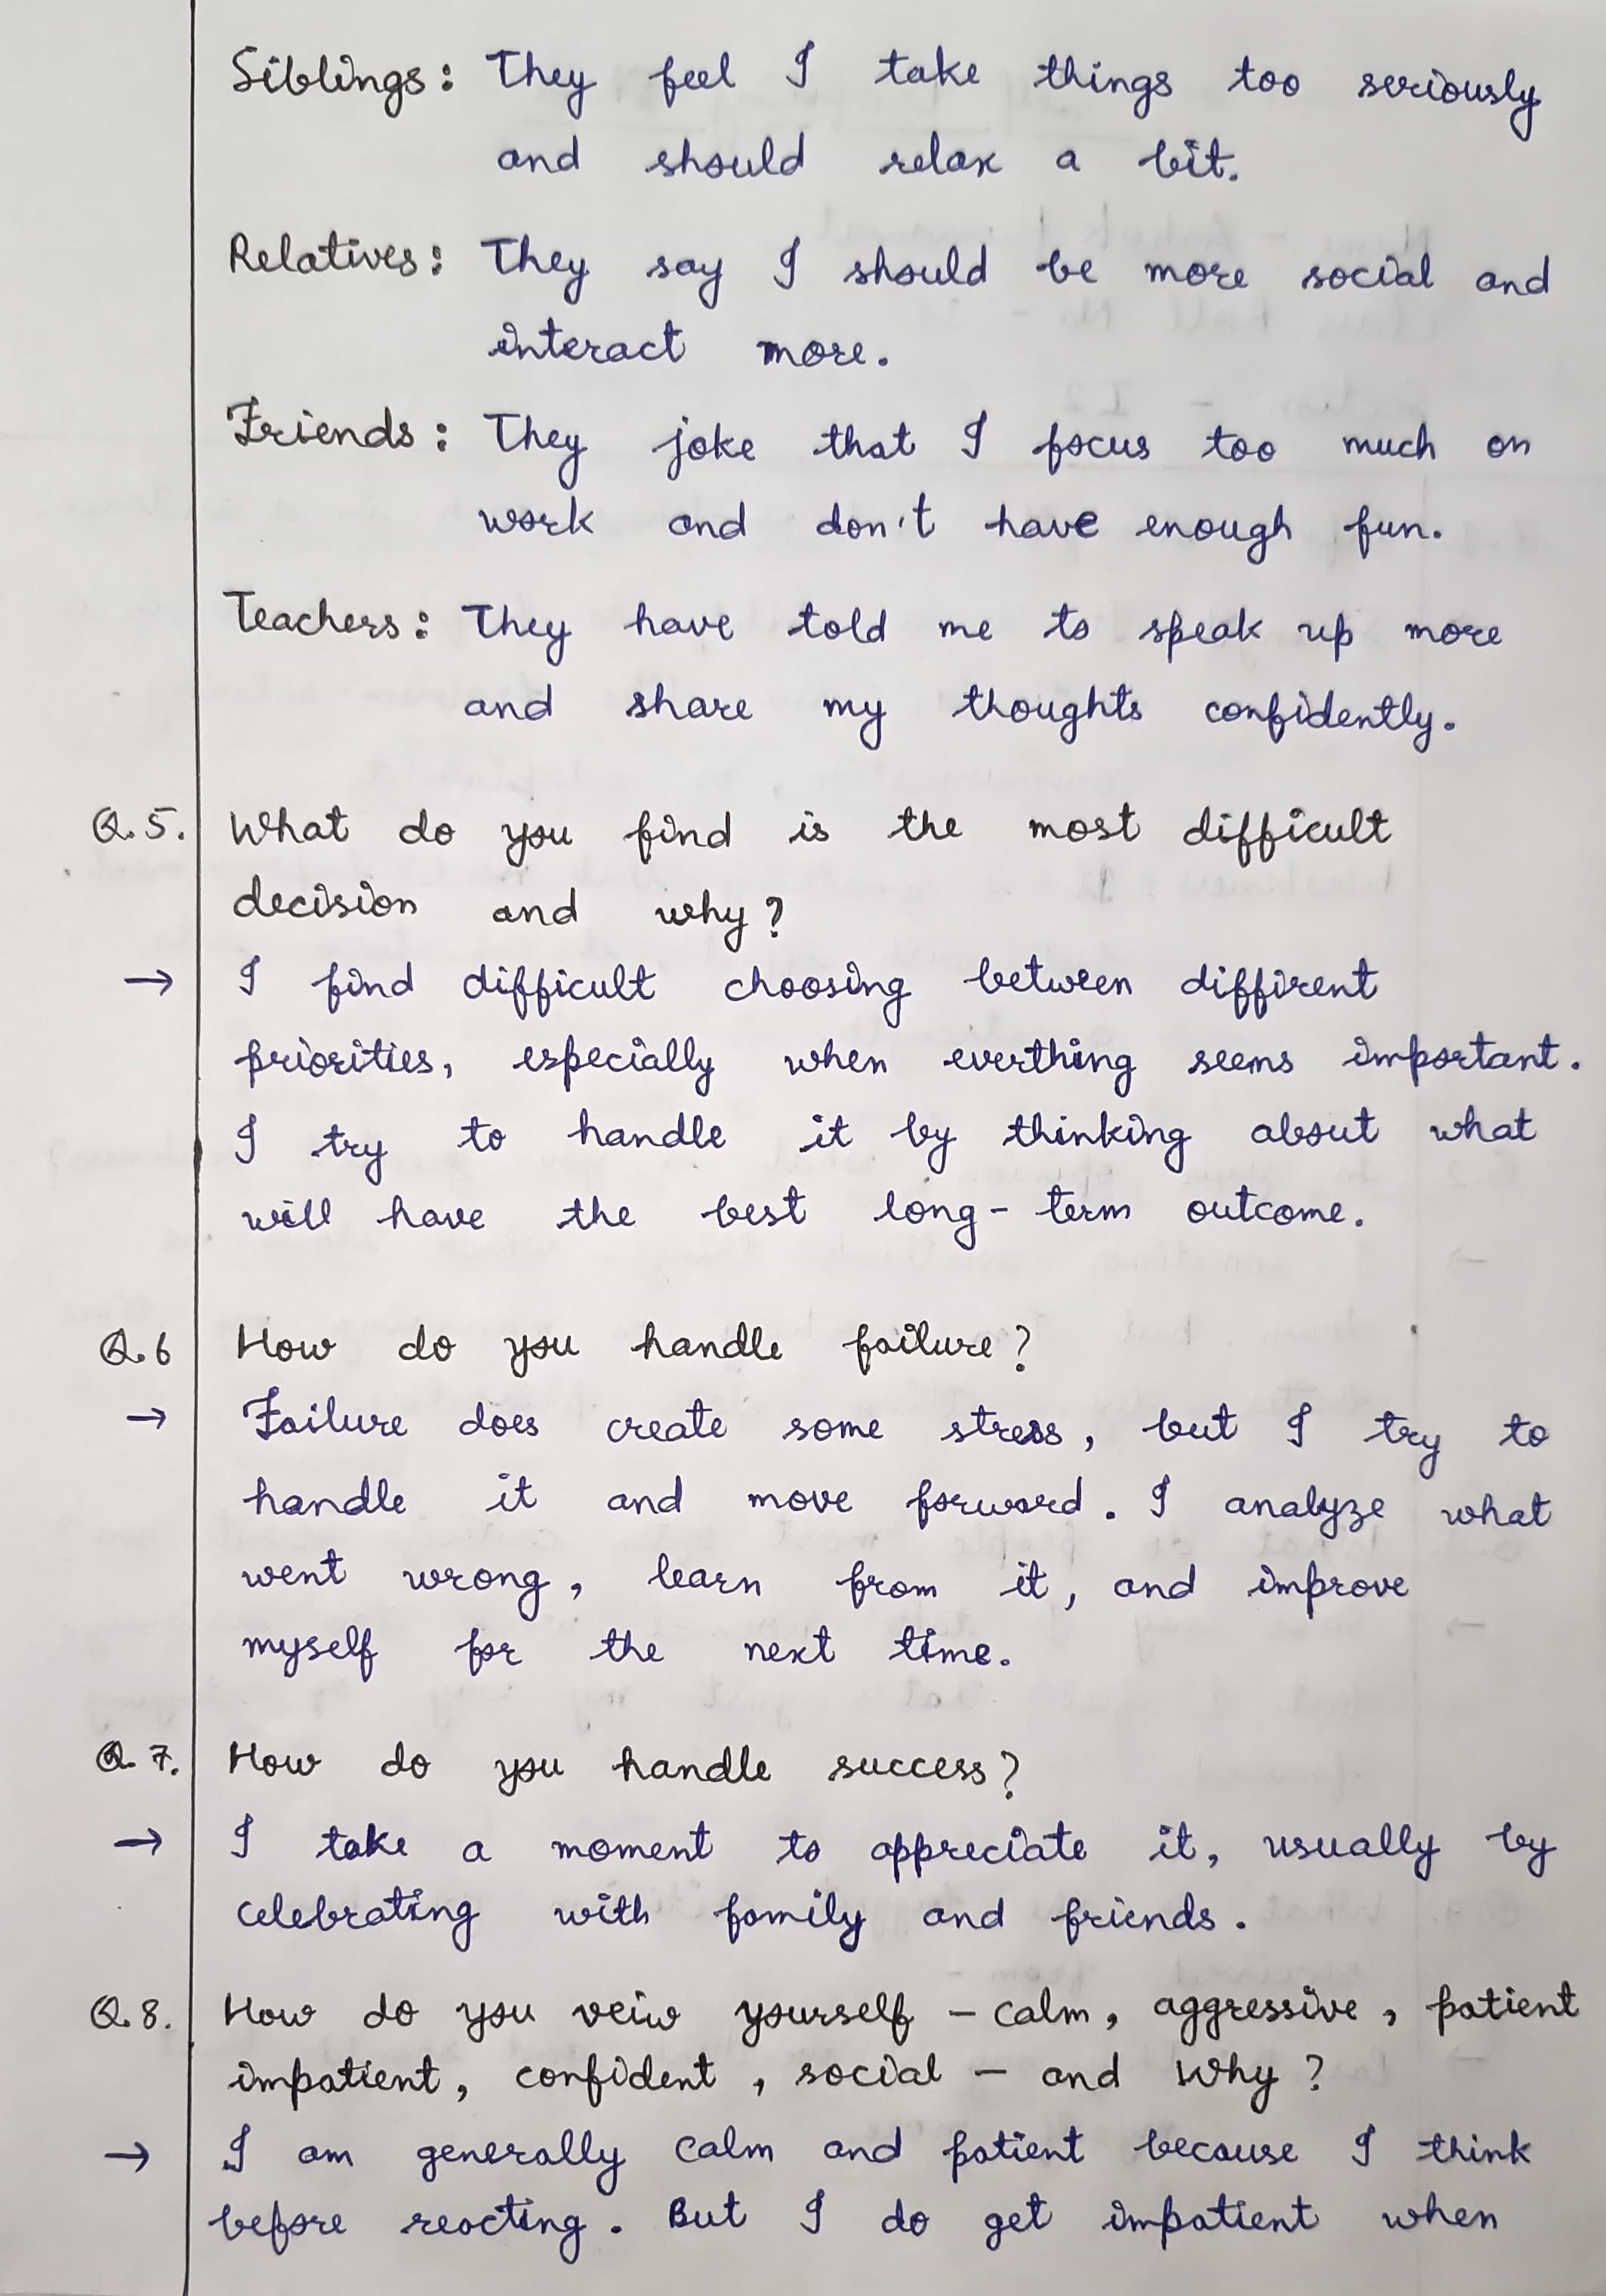 Siblings: They feel I take things too seriously
and should relax a bit.
Relatives: They say I should be more social and
interact more.
Friends: They joke that I focus too much on
work and don't have enough fun.
Teachers: They have told me to speak up more
and share my thoughts confidently.
Q.5. What do you find is the most difficult
decision and why?
→ I find difficult choosing between diffirent
priorities, especially when everthing seems important.
I try to handle it by thinking about what
will have the best long-term outcome.
Q.6 How do you handle failure?
→ Failure does create some stress, but I try to
handle it and move forward. I analyze what
went wrong, learn from it, and improve
myself for the next time.
Q.7. How do you handle success?
→ I take a moment to appreciate it, usually by
celebrating with family and friends.
Q.8. How do you veiw yourself - calm, aggressive, patient
impatient, confident, social - and why?
→ I am generally calm and patient because I think
before reacting. But I do get impatient when